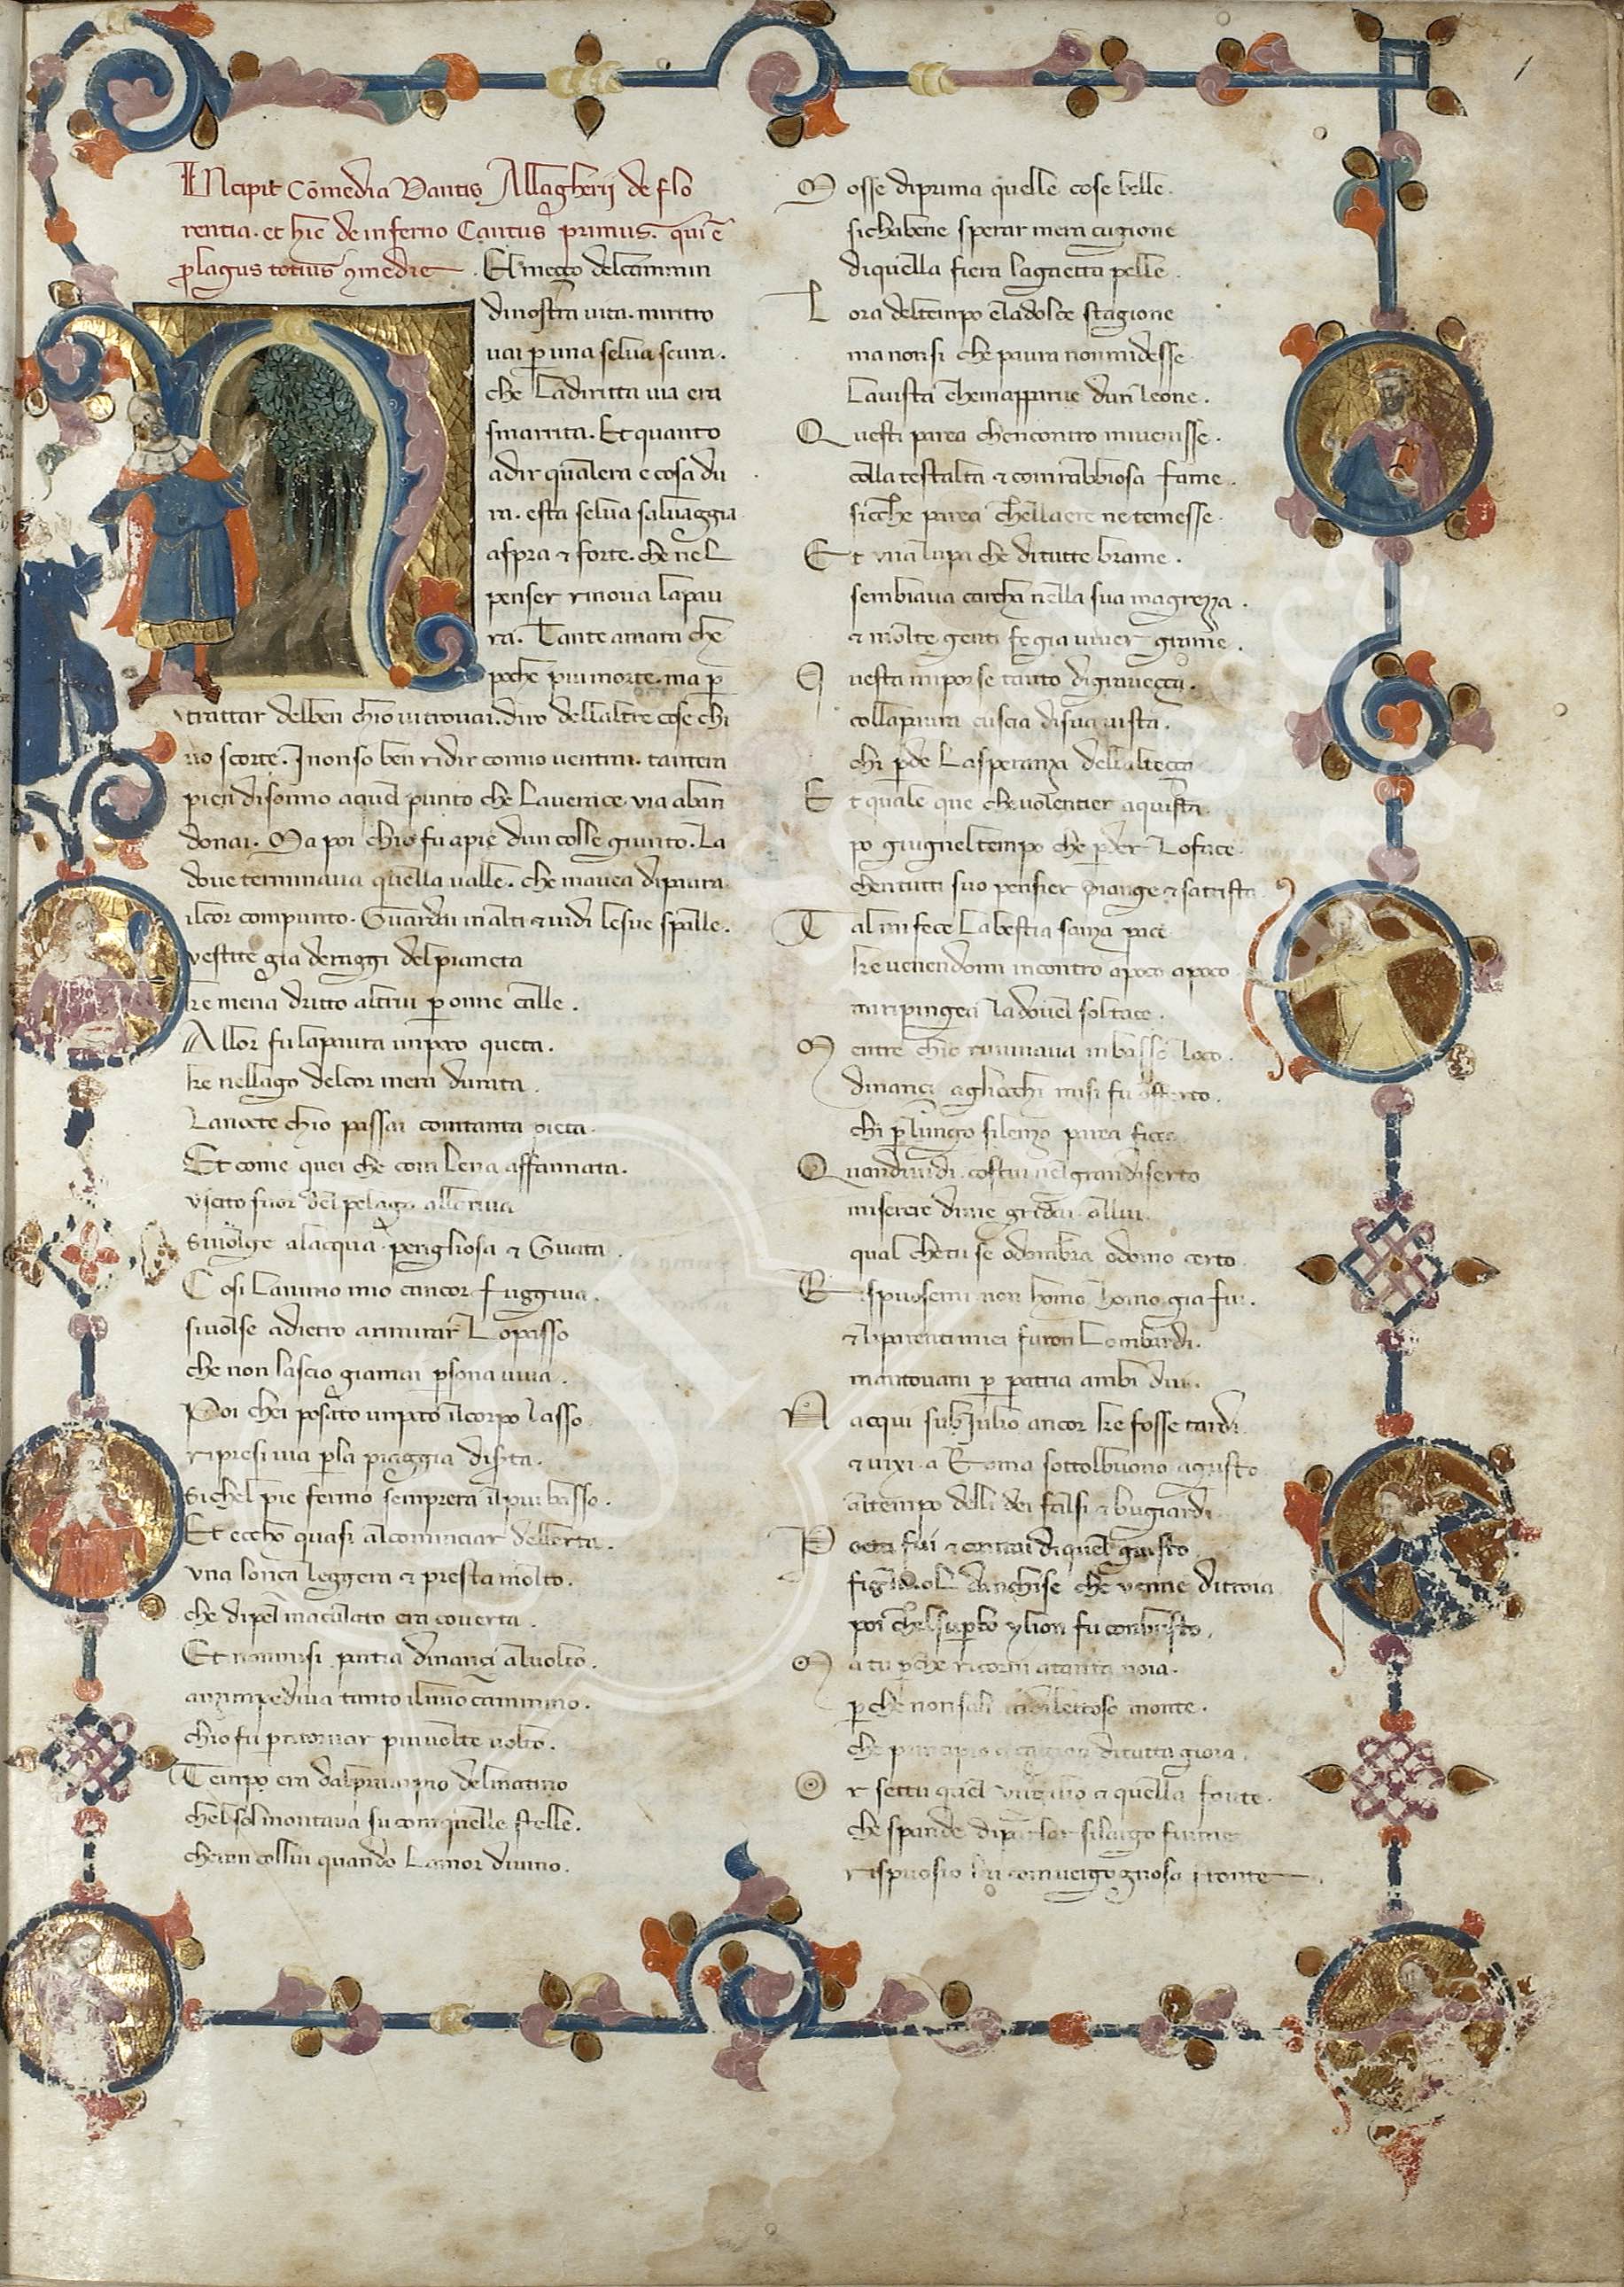 INcipit Comedia Dantis Allagherij de flo
rentia. et hic de inferno Cantus primus. qui ē
plagus totius 9medie. El meçço del cammin
di nostra uita. mi ritro
uai p una selua scura.
che La diritta uia era
smarrita. Et quanto
a dir qual era e cosa du
ra. esta selua saluaggia
aspra & forte. che nel
penser rinoua la pau
ra. Tante amara che
poche piu morte. ma p
trattar del ben chio ui trouai. diro dellaltre cose chi
uo scorte. I non so ben ridir comio uentrai. tantera
pien di sonno a quel punto che La uerace uia aban
donai. Ma poi chio fu apie dun colle giunto. La
doue terminaua quella ualle. che mauea di paura
il cor compunto. Guardai in alti & uidi le sue spalle.
vestite gia de raggi del pianeta
ke mena dritto altrui p onne calle.
Allor fu la paura un poco queta.
ke nellago del cor mera durata.
La nocte chio passai con tanta pieta.
Et come quei che con Lena affannata.
vscito fuor del pelago alla riua
si uolge a lacqua perigliosa & Guata.
Cosi Lanimo mio cancor fuggiua.
si uolse a dietro a rimirar Lo passo
che non lascio giamai psona uiua.
Poi chei posato un poco il corpo lasso
ripresi uia p la piaggia diserta.
si chel pie fermo sempre era il piu basso.
Et eccho quasi al cominciar dellerta.
vna lonça leggera & presta molto.
che di pel maculato era couerta.
Et non mi si partia dinançi al uolto.
anzi mpediua tanto il mio cammino.
chio fu p ritornar piu uolte uolto.
Tempo era dal principio del matino
chel sol montaua su con quelle stelle.
cheran collui quando Lamor diuino.
Mosse di prima quelle cose belle.
si cha bene sperar mera cagione
di quella fiera la gaetta pelle.
Lora del tempo & la dolce stagione
ma non si che paura non mi desse
La uista che mapparue dun leone.
Questi parea chencontro mi uenisse.
colla testalta & con rabbiosa fame.
sicche parea chellaere ne temesse.
Et vna lupa che di tutte brame.
sembiaua carcha nella sua magrezza.
& molte genti fe gia uiuer grame.
Questa mi porse tanto di graueçça.
colla paura cuscia di sua uista.
chi pde La speranza dellalteçça
Et quale que che uolentier aquista.
po giugnel tempo che pder Lo face.
chen tutti suo pensier piange & sattrista.
Tal mi fece La bestia sanza pace
ke uenendomi incontro a poco a poco
mi ripingea la douel sol tace.
Mentre chio ruuinaua in basso loco.
dinançi agliocchi mi si fu offerto.
chi p lungo silenzo parea fioco
Quandi uidi costui nel gran diserto
miserere di me gridai a llui.
qual che tu se od ombra od omo certo.
Rispuosemi non homo homo gia fui.
& li parenti miei furon Lombardi.
mantouani p patria ambi dui.
Nacqui sub Julio ancor ke fosse tardi.
& uixi a Roma sottol buono agusto
al tempo delli dei falsi & bugiardi.
Poeta fui & cantai di quel giusto
figliuol danchise che venne di troia
poi chel supbo ylion fu combusto.
Ma tu pche ritorni a tanta noia.
pche non sali il dilettoso monte.
che principio e cagion di tutta gioia.
Or settu quel virgilio & quella fonte.
che spande di parlar si largo fiume
rispuosio lui con uergognosa fronte.